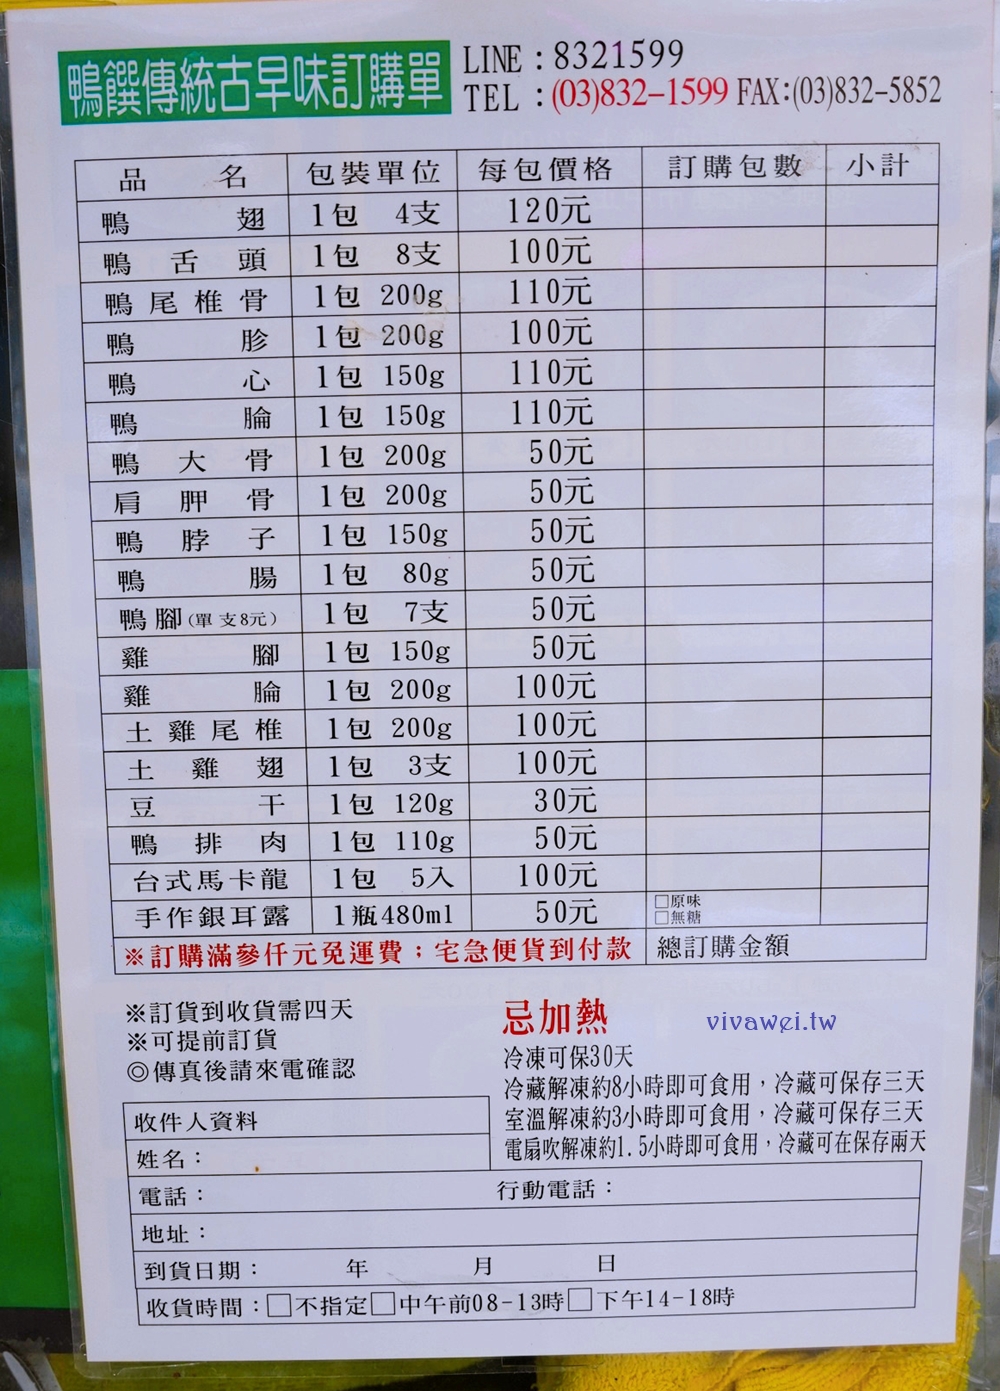 鴨饌傳統古早味訂購單
LINE：8321599
TEL：(03)832-1599 FAX:(03)832-5852
品名 包裝單位 每包價格 訂購包數 小計
鴨翅 1包 4支 120元
鴨舌頭 1包 8支 100元
鴨尾椎骨 1包 200g 110元
鴨胗 1包 200g 100元
鴨心 1包 150g 110元
鴨腀 1包 150g 110元
鴨大骨 1包 200g 50元
肩胛骨 1包 200g 50元
鴨脖子 1包 150g 50元
鴨腸 1包 80g 50元
鴨腳(單支8元) 1包 7支 50元
雞腳 1包 150g 50元
雞腀 1包 200g 100元
土雞尾椎 1包 200g 100元
土雞翅 1包 3支 100元
豆干 1包 120g 30元
鴨排肉 1包 110g 50元
台式馬卡龍 1包 5入 100元
手作銀耳露 1瓶480ml 50元 □原味 □無糖
※訂購滿參仟元免運費；宅急便貨到付款 總訂購金額
※訂貨到收貨需四天
※可提前訂貨
◎傳真後請來電確認
忌加熱
vivawei.tw
冷凍可保30天
冷藏解凍約8小時即可食用，冷藏可保存三天
室溫解凍約3小時即可食用，冷藏可保存三天
電扇吹解凍約1.5小時即可食用，冷藏可在保存兩天
收件人資料
姓名：
電話： 行動電話：
地址：
到貨日期： 年 月 日
收貨時間：□不指定□中午前08-13時□下午14-18時